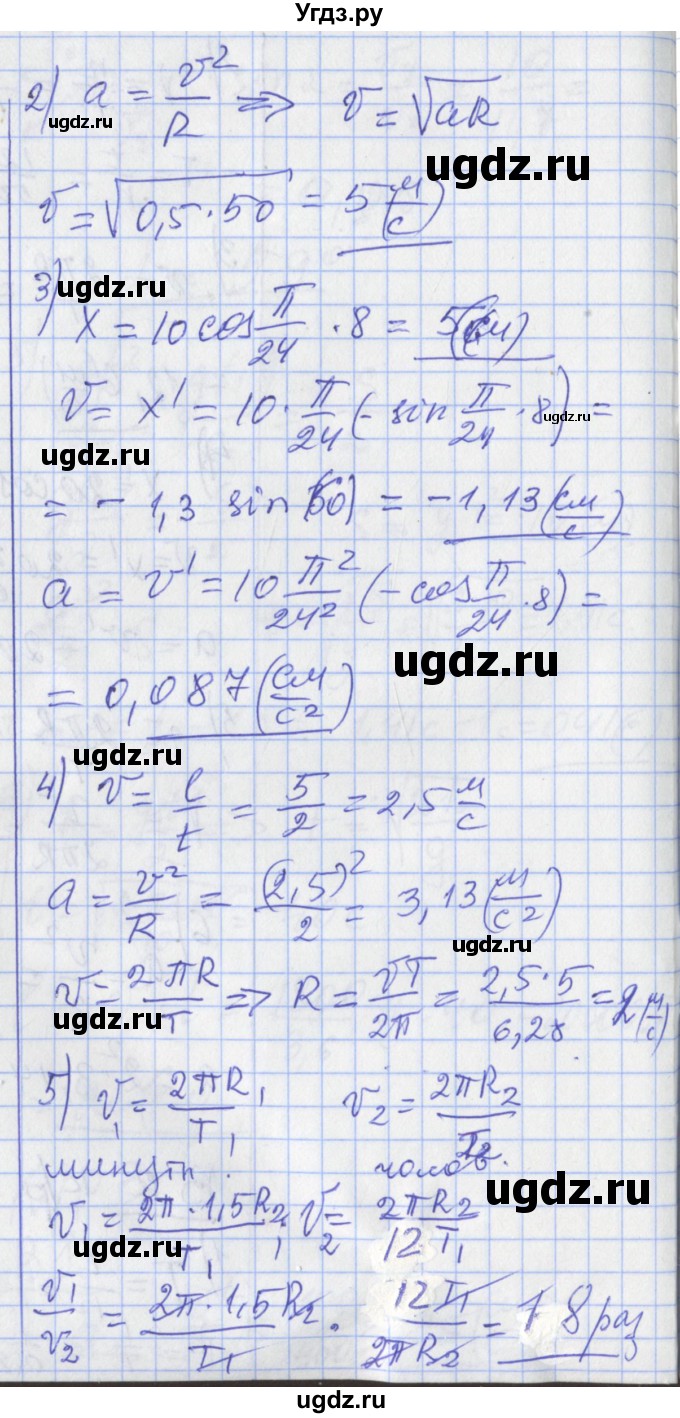 Угдз.ру
2) a = v²/R => v = √aR
ugdz.ru
ugdz.ru
v = √0,5·50 = 5 (м/с)
3) ugdz.ru
ugdz.ru
x = 10 cos π/24 · 8 = 5 (см)
v = x' = 10 · π/24 (- sin π/24 · 8) =
ugdz.ru
ugdz.ru
= - 1,3 sin (60) = -1,13 (см/с)
a = v' = 10 π²/24² (- cos π/24 · 8) =
ugdz.ru
= 0,087 (см/с²)
ugdz.ru
4) v = l/t = 5/2 = 2,5 м/с
a = v²/R = (2,5)²/2 = 3,13 (м/с²)
ugdz.ru
v = 2πR/T => R = vT/2π = 2,5·5/6,28 = 2 (м/с)
ugdz.ru
5) v₁ = 2πR₁/T₁ v₂ = 2πR₂/T₂
минутн. часов.
ugdz.ru
v₁ = 2π·1,5R₂/T₁; v₂ = 2πR₂/12T₁
ugdz.ru
v₁/v₂ = 2π·1,5R₂/T₁ · 12T₁/2πR₂ = 18 раз
ugdz.ru